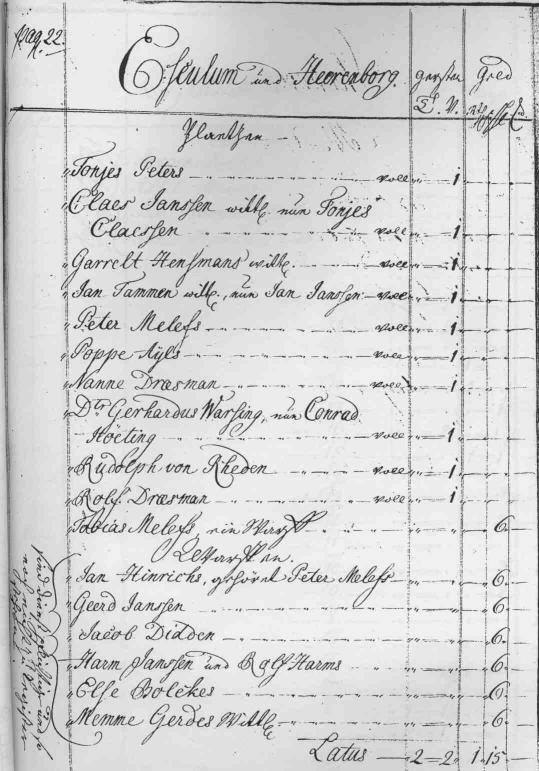 pag 22.
Esculum und Heerenborg. gersten Geld
T. V. Rtl.
Plaetzen
Tonjes Peters voll 1
Claes Janssen witt. nun Tonjes
Claessen voll 1
Garrelt Hensmans witt. voll 1
Jan Tammen witt., nun Jan Janssen voll 1
Peter Melefs voll 1
Poppe Ayls voll 1
Nanne Draesman voll 1
Dr Gerhardus Warsing, nun Conrad
Höeting voll 1
Rudolph von Rheden voll 1
Rolf Draesman voll 1
Tobias Melefs, ein Warf 6.
Jan Hinrichs, gehöret Peter Melefs 6.
Geerd Janssen 6.
Jacob Didden 6.
Harm Janssen und Rolf Harms 6.
Else Bolekes 6.
Memme Gerdes Witt. 6.
Latus 2 2 1 15